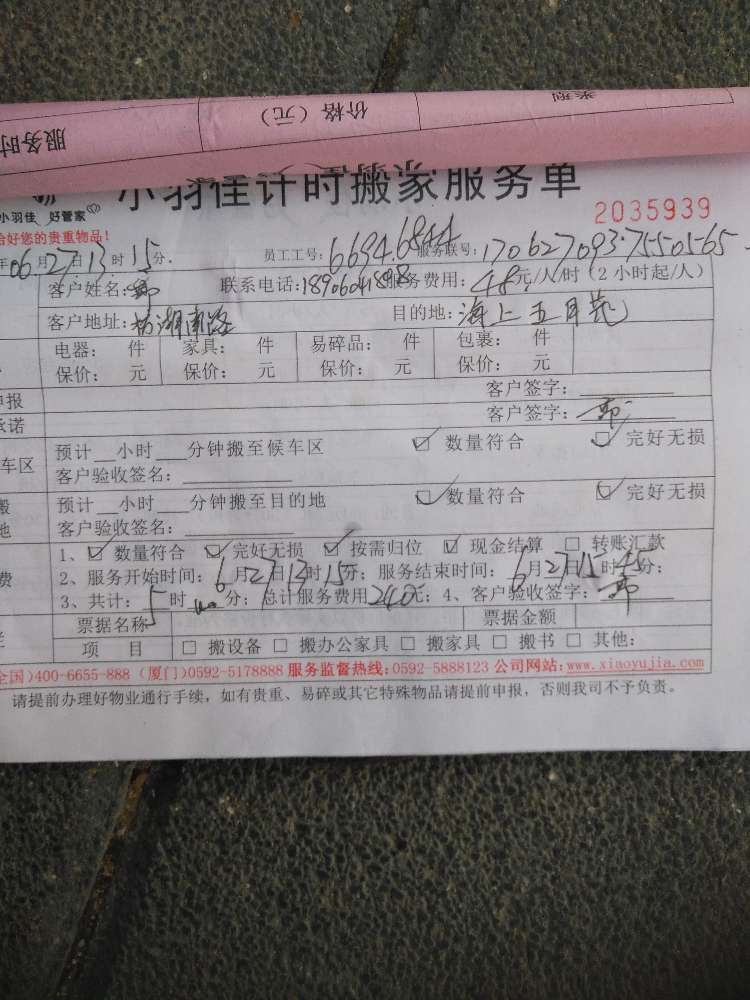 类型 价格（元） 服务时
小羽佳计时搬家服务单
小羽佳 好管家
2035939
合好您的贵重物品！
年06月27日13时15分. 员工工号：6694.6844 服务联号：170627093.7550565
客户姓名：郭 联系电话： 服务费用：48元/人/时（2小时起/人）
客户地址：湖南路 目的地：海上五月花
电器： 件 家具： 件 易碎品： 件 包裹： 件
保价： 元 保价： 元 保价： 元 保价： 元
申报 客户签字：
承诺 客户签字：郭
车区 预计 小时 分钟搬至候车区 ☑ 数量符合 ☑ 完好无损
客户验收签名：
搬 预计 小时 分钟搬至目的地 ☑ 数量符合 ☑ 完好无损
地 客户验收签名：
1、☑ 数量符合 ☑ 完好无损 ☑ 按需归位 ☑ 现金结算 □ 转账汇款
费 2、服务开始时间：6月27日13时15分；服务结束时间：6月27日15时45分；
3、共计：5时 分；总计服务费用240元；4、客户验收签字：郭
票据名称 票据金额
项 目 □ 搬设备 □ 搬办公家具 □ 搬家具 □ 搬书 □ 其他：
全国)400-6655-888 (厦门)0592-5178888 服务监督热线:0592-5888123 公司网站:www.xiaoyujia.com
请提前办理好物业通行手续，如有贵重、易碎或其它特殊物品请提前申报，否则我司不予负责。